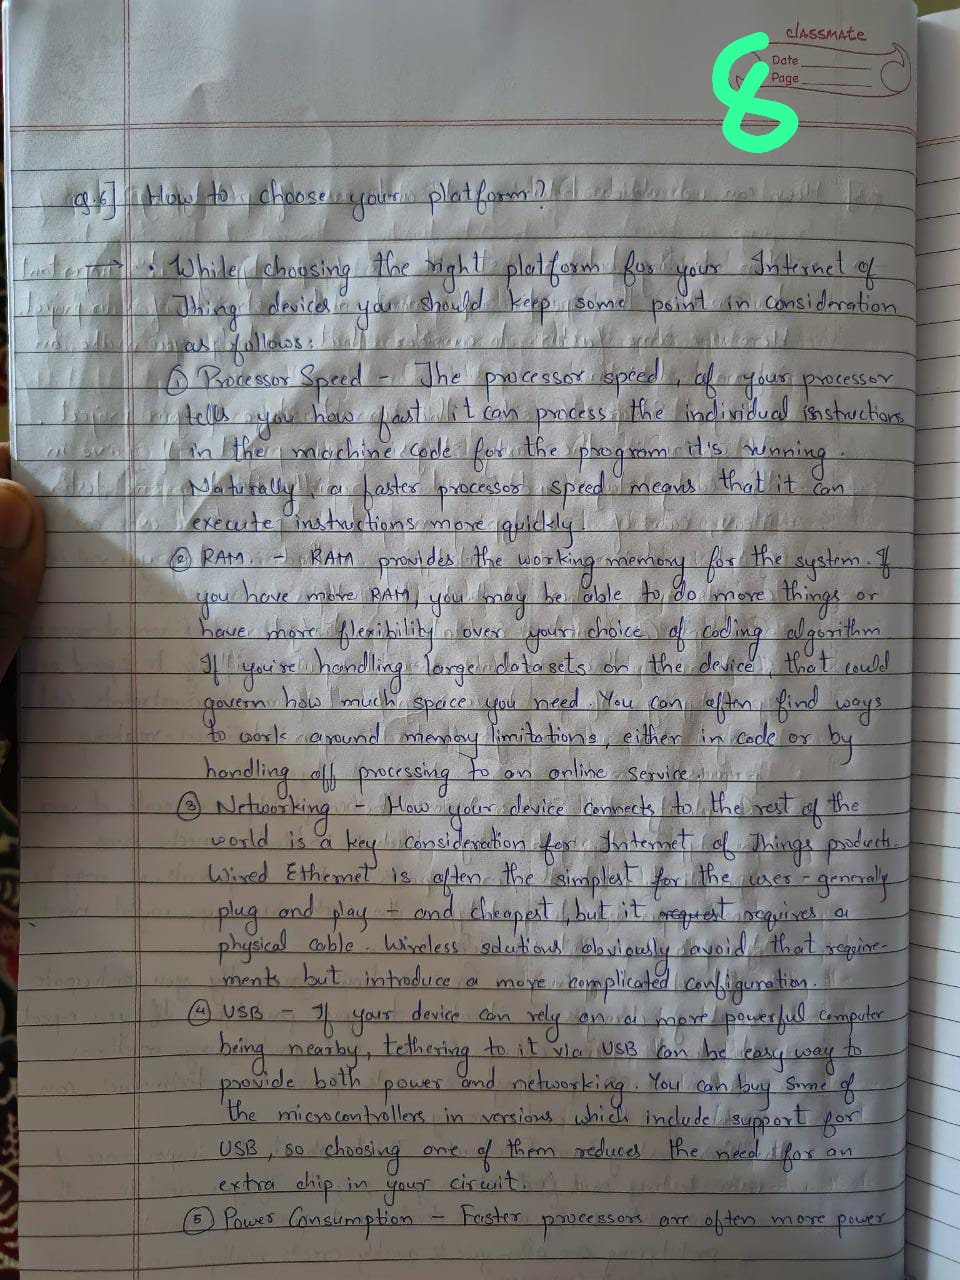 classmate
Date
Page
8
Q.6] How to choose your platform?
→ • While choosing the right platform for your Internet of
Thing devices you should keep some point in consideration
as follows:
① Processor Speed - The processor speed, of your processor
tells you how fast it can process the individual instructions
in the machine code for the program it's running.
Naturally, a faster processor speed means that it can
execute instructions more quickly.
② RAM. - RAM provides the working memory for the system. If
you have more RAM, you may be able to do more things or
have more flexibility over your choice of coding algorithm
If you're handling large datasets on the device, that could
govern how much space you need. You can often find ways
to work around memory limitations, either in code or by
handling off processing to an online service.
③ Networking - How your device connects to the rest of the
world is a key consideration for Internet of Things products.
Wired Ethernet is often the simplest for the user - generally
plug and play - and cheapest, but it request requires a
physical cable. Wireless solutions obviously avoid that require-
ments but introduce a more complicated configuration.
④ USB - If your device can rely on a more powerful computer
being nearby, tethering to it via USB can be easy way to
provide both power and networking. You can buy some of
the microcontrollers in versions which include support for
USB, so choosing one of them reduces the need for an
extra chip in your circuit.
⑤ Power Consumption - Faster processors are often more power